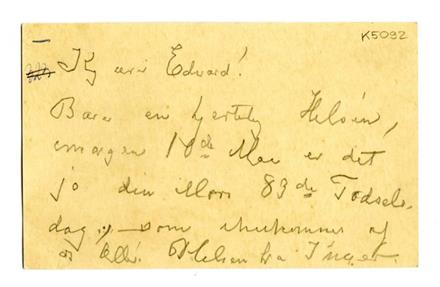 K5092
Kjære Edvard!
Bare en hjertelig Hilsen,
imorgen 18de Mai er det
jo din Mors 83de Fødsels-
dag, som ihukommes af
os Alle! Hilsen fra Inger.